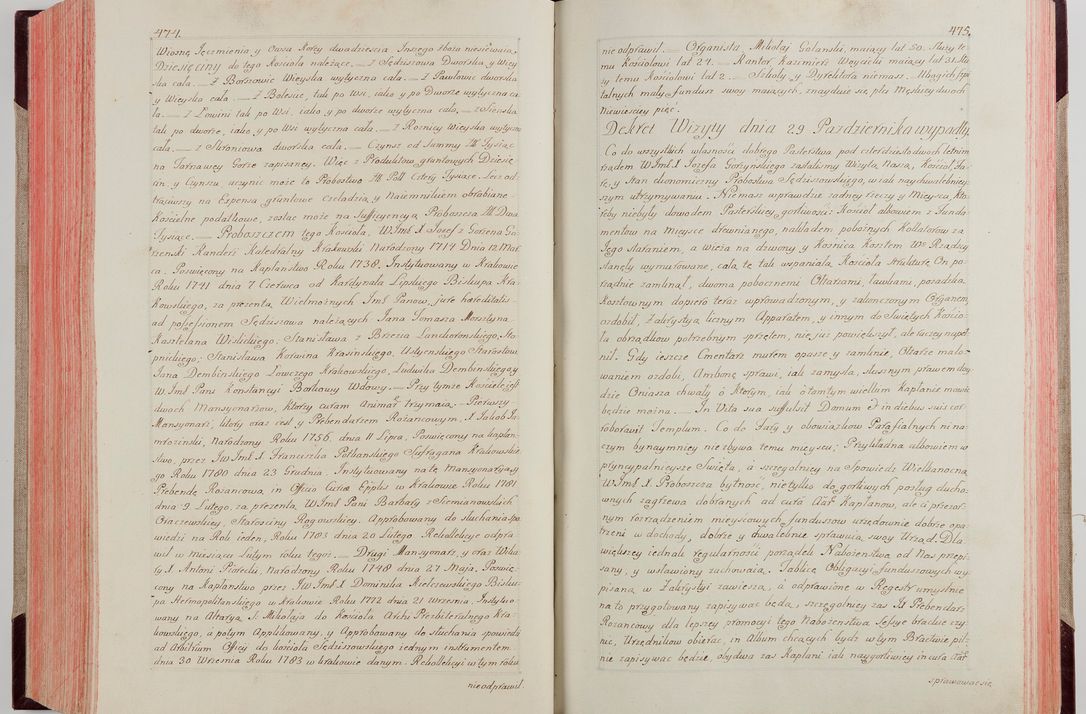 474.
Wiosnę Jęczmienia, y Owsa Korcy dwadziescia. Inszego zboza niesiewaią.
Dziesięciny do tego Kosciola nalezące. — Z Sędziszowa Dworska y Wiey
ska cała. — Z Borszowic Wieyska wytyczna cała. — Z Pawłowic dworska
y Wieyska cała. — Z Bolesuc, tak po Wsi, iako y po Dworze wytyczna ca
ła. — Z Łowini tak po Wsi, iako y po dworze wytyczna cała, —
tak po dworze, iako y po Wsi wytyczna cała. — Z Roznicy Wieyska wytyczna
cała. — Z dworska cała. — Czynsz od Summy Zł Tysiąc
na Tarnawcey Gorze zapisaney. Więc z Produktow gruntowych Dziesię
cin, y Czynszu uczynic moze to Probostwo Zł Poll Cztery Tysiące. Lecz od
trąciwszy na Expensa gruntowe czeladzią y Naiemnikiem obrabiane
Koscielne podatkowe, zostac moze na Sufficyencyą Proboszcza Zł Dwa
Tysiące. — Proboszczem tego Kosciola, W Jmć X Jozef z Gorzena Go
rzenski Kanonik Katedralny Krakowski Narodzony 1714 Dnia 12 Mar
ca. Poswięcony na Kaplanstwo Roku 1738. Instytuowany w Krakowie
Roku 1741 dnia 7 Czerwca od Kardynała Lipskiego Biskupa Kra
kowskiego, za prezentą Wielmoznych Jmć Panow, jure haereditatis
ad possessionem Sędziszowa nalezących Jana Tomasza Morsztyna
Kasztelana Wislickiego, Stanisława z Brzezia Lanckoronskiego, Sto
pnickiego; Stanisława Korwina Krasinskiego, Ustyenskiego Starostow,
Jana Dembinskiego Łowczego Krakowskiego, Ludwika Dembinskiego, y
W Jmć Pani Konstancyi Borkowy Wdowy. — Przy tymze Kosciele jest
dwoch Mansyonarzow, ktorzy curam Animar trzymaią. — Pierwszy
Mansyonarz, ktory oraz iest y Prebendarzem Rozancowym, X Jakob Ja
mrozinski, Narodzony Roku 1756. dnia 11 Lipca, Poswięcony na kaplan
stwo, przez Jw Jmć X Franciszka Potkanskiego Suffragana Krakowskie
go Roku 1780 dnia 23 Grudnia. Instytuowany na tę Mansyonaryą y
Prebendę Rozancową, in Officio Curiae Epplis w Krakowie Roku 1781
dnia 9 Lutego, za prezentą, W Jmć Pani Barbary z Siemianowskich
Oraczewskiey, Starosciny Rogowskiey. Approbowany do słuchania Spo
wiedzi na Rok ieden, Roku 1783 dnia 20 Lutego. Rekollekcye odpra
wił w miesiącu Lutym roku tegoż. — Drugi Mansyonarz, y oraz Wika
ry X Antoni Piorecki, Narodzony Roku 1748 dnia 27 Maja, Poswię
cony na Kaplanstwo przez Jw Jmć X Dominika Kielczewskiego Bisku
pa Hermopolitanskiego w Krakowie Roku 1772 dnia 21 Wrzesnia, Instytuo
wany na Altaryą S. Mikołaja do Kosciola Archi Presbiteralnego Kra
kowskiego, a potym Applikowany, y Approbowany do słuchania spowiedzi
ad Arbitrium Officy do kosciola Sędziszowskiego iednym instrumentem
dnia 30 Wrzesnia Roku 1783 w krakowie danym. Rekollekcyi w tym roku
nie odprawił.
475.
nie odprawił. — Organista, Mikołaj Golanski, maiący lat 50. Słuzy te
mu Kosciołowi lat 24. — Kantor Kazimierz Woycicki maiący lat 31. Słu
ży temu Kosciołowi lat 2. — Szkoły y Dyrektora niemasz. Ubogich szpi
talnych mały fundusz swoy maiących, znayduie się, płci Męskiey dwoch
Niewiesciey pięc.
Dekret Wizyty dnia 29 Pazdziernika wypadły
Co do wszystkich własnosci dobrego Pasterstwa pod czterdziestodwoch letnim
rządem W Jmć X Jozefa Gorzynskiego zastalismy Wizytą Naszą, Kosciol Pa
rę, y Stan ekonomiczny Probostwa Sędziszowskiego, w iak naychwalebniey
szym utrzymywaniu. Niemasz wprawdzie zadney rzeczy y Mieysca, kto
reby niebyły dowodem Pasterskiey gorliwosci: Kosciol albowiem z funda
mentow na mieysce drewnianego, nakładem poboznych Kollatorow za
Jego staraniem, a wieza na dzwony y kosnica kosztem Wo Rządzy
stanęły wymurowane, cała tę tak wspaniała Kosciola Strukturę, On po
rządnie zamknął, dwoma pobocznemi Ołtarzami, ławkami, posadzką,
Kosztownym dopiero teraz wprowadzonym, y zakonczonym Organem,
ozdobił, Zakrystyą licznym Apparatem, y innym do Swiętych Koscio
ła obrządkow potrzebnym sprzętem, nie iuz powiększył, ale raczey napeł
nił. Gdy ieszcze Cmentarz murem opasze, y zamknie, Ołtarze malo
waniem ozdobi, Ambonę sprawi, iak zamysla, słusznym prawem doy
dzie Oniasza chwały o ktorym, iak o tamtym wielkim Kaplanie mowic
będzie mozna. — In Vita sua suffulsit Domum & in diebus suis cor
roboravit Templum. Co do Dary y obowiązkow Parafialnych ni na
czym bynaymniey nie zbywa temu mieyscu; Przykładna albowiem w
pryncypalnieysze Swięta, a szczegolniey na Spowiedz Wielkanocną
W Jmć X Proboszcza bytnosć, nietylko do gorliwych posług ducho
wnych zagrzewa dobranych ad cura Aar Kaplanow, ale i przezor
nym rozrządzeniem mieyscowych funduszow urzędownie dobrze opa
trzeni w dochody, dobrze y chwalebnie sprawuią swoy Urząd. Dla
większey iednak regularnosci porządek Nabozenstwa od Nas przepi
sany, y ustawiony zachowaią. Tablicę Obligacyi funduszowych wy
pisaną w Zakrystyi zawieszą, a odprawione w Regestr umyslnie
na to przygotowany zapisywac będą, szczegolniey zas JX Prebendarz
Rozancowy dla lepszey promocyi tego Nabozenstwa Sessye brackie czy
nic, Urzędnikow obierac, in Album chcących bydz w tym Bractwie pil
nie zapisywac będzie, obydwa zas Kaplani iak naygorliwiey in cura Aar
sprawowac się